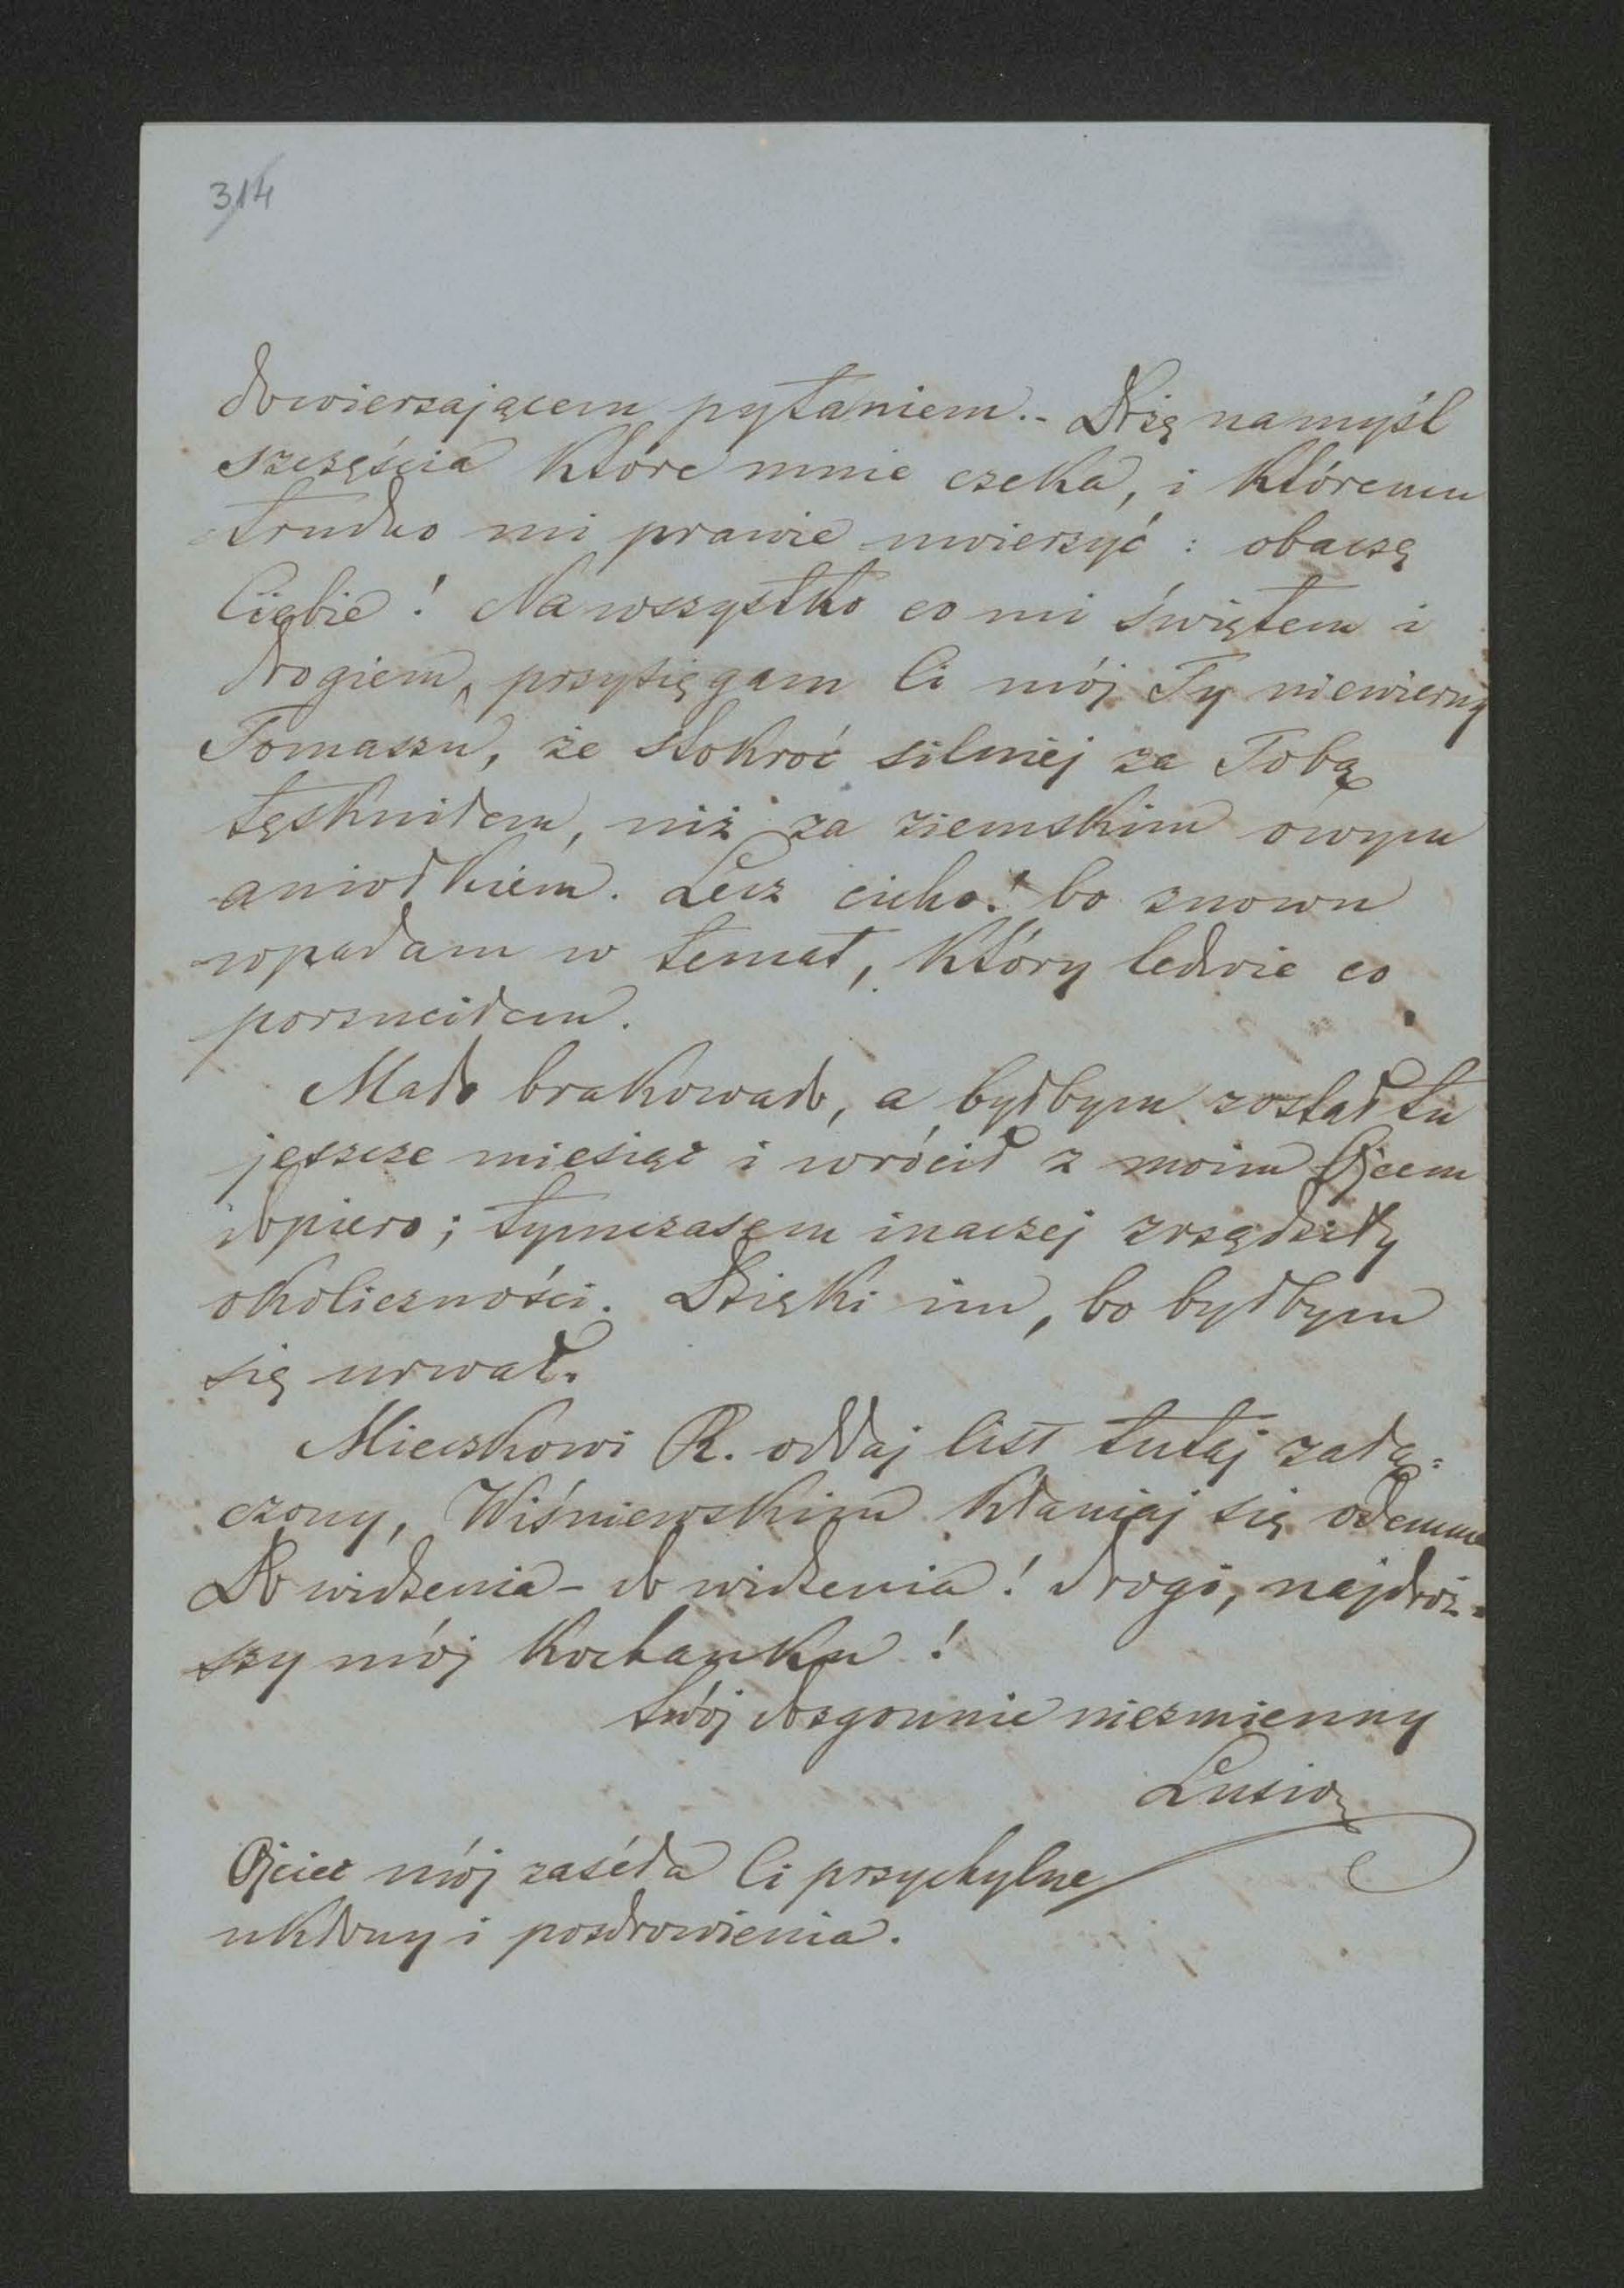 314
dowierzającem pytaniem.- Drżę na myśl
szczęścia które mnie czeka, i któremu
trudno mi prawie uwierzyć : obaczę
Ciebie! Na wszystko co mi świętem i
drogiem, przysięgam Ci mój Ty niewierny
Tomaszu, że stokroć silniej za Tobą
tęskniłem, niż za ziemskim owym
aniołkiem. Lecz cicho! bo znowu
wpadam w temat, który ledwie co
porzuciłem.
Mało brakowało, a byłbym został tu
jeszcze miesiąc i wrócił z moim Ojcem
dopiero; tymczasem inaczej zrządziły
okoliczności. Dzięki im, bo byłbym
się urwał.
Mieczkowi R. oddaj list tutaj załą=
czony, Wiśniewskim kłaniaj się odemnie
Do widzenia - do widzenia! drogi, najdroż=
szy mój kochanku!
twój dozgonnie niezmienny
Lusio
Ojciec mój zaséła Ci przychylne
ukłony i pozdrowienia.